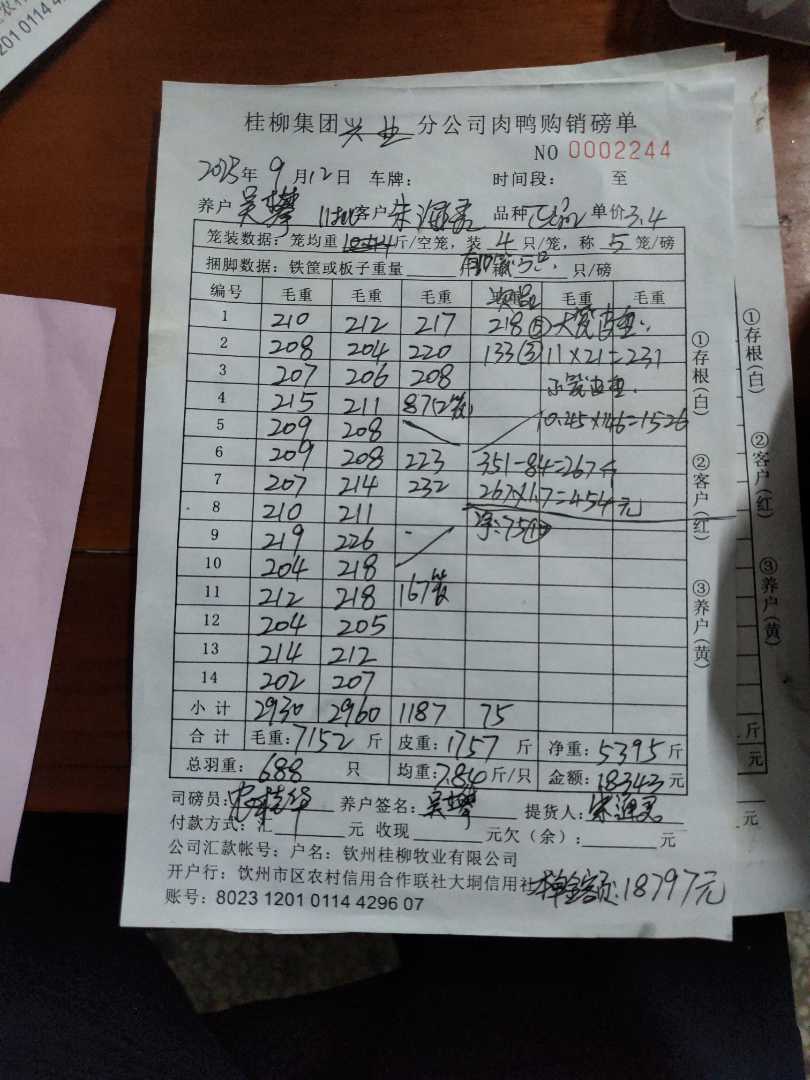 桂柳集团兴业分公司肉鸭购销磅单
NO 0002244
2025年9月12日 车牌: 时间段: 至
养户吴攀 客户 品种正品 单价3.4
笼装数据:笼均重 斤/空笼,装4只/笼,称5笼/磅
捆脚数据:铁筐或板子重量 只/磅
编号 毛重 毛重 毛重 毛重 毛重
1 210 212 217 218(5) 大笼皮重:
2 208 204 220 133(3) 11×21=231
3 207 206 208 小笼皮重:
4 215 211 87(2笼) 10.45×146=1526
5 209 208
6 209 208 223 351-84=267斤
7 207 214 232 267×1.7=454元
8 210 211 净:75
9 219 226
10 204 218
11 212 218 167笼
12 204 205
13 214 212
14 202 207
小计 2930 2960 1187 75
合计 毛重:7152斤 皮重:1757斤 净重:5395斤
总羽重:688只 均重:7.84斤/只 金额:18343元
司磅员: 养户签名:吴攀 提货人:
付款方式:汇 元 收现 元欠(余): 元
公司汇款帐号:户名:钦州桂柳牧业有限公司
开户行:钦州市区农村信用合作联社大垌信用社
金额:18797元
账号:8023 1201 0114 4296 07
①存根(白)
②客户(红)
③养户(黄)
①存根(白)
②客户(红)
③养户(黄)
斤
元
元
201 0114 4296